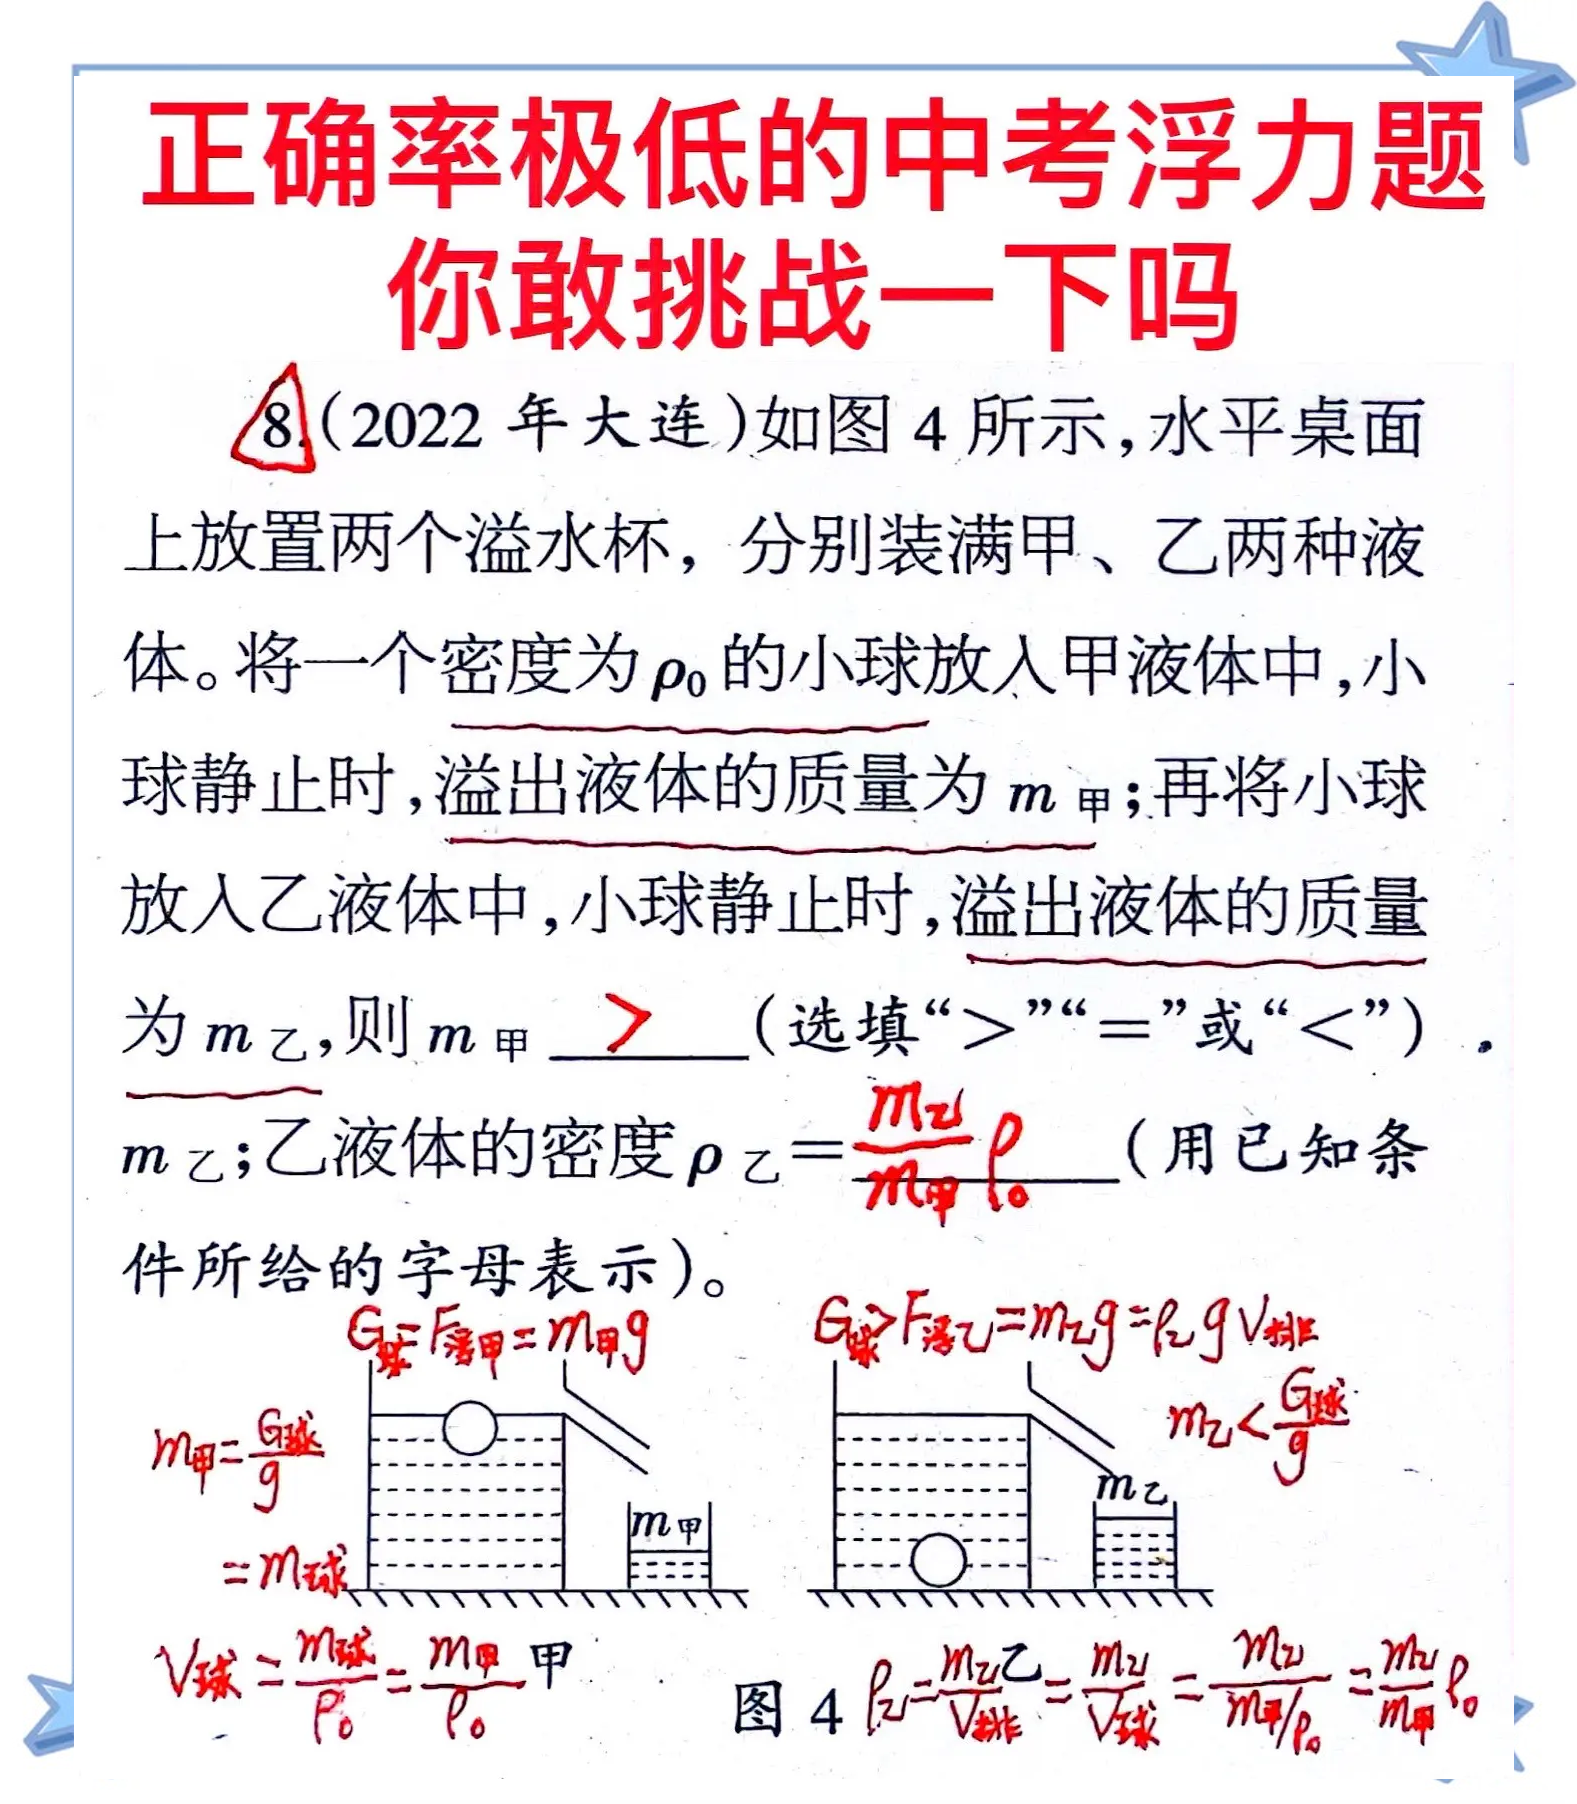 正确率极低的中考浮力题
你敢挑战一下吗
8.(2022年大连)如图4所示,水平桌面
上放置两个溢水杯,分别装满甲、乙两种液
体。将一个密度为ρ₀的小球放入甲液体中,小
球静止时,溢出液体的质量为m甲;再将小球
放入乙液体中,小球静止时,溢出液体的质量
为m乙,则m甲 > (选填“>”“=”或“<”)
m乙;乙液体的密度ρ乙=m乙/m甲 ρ₀(用已知条
件所给的字母表示)。
G球=F浮甲=m甲g
G球>F浮乙=m乙g=ρ乙gV排
m甲=G球/g
=m球
m乙<G球/g
m甲
m乙
V球=m球/ρ₀=m甲/ρ₀
甲
乙
图4
ρ乙=m乙/V排=m乙/V球=m乙/(m甲/ρ₀)=m乙/m甲 ρ₀